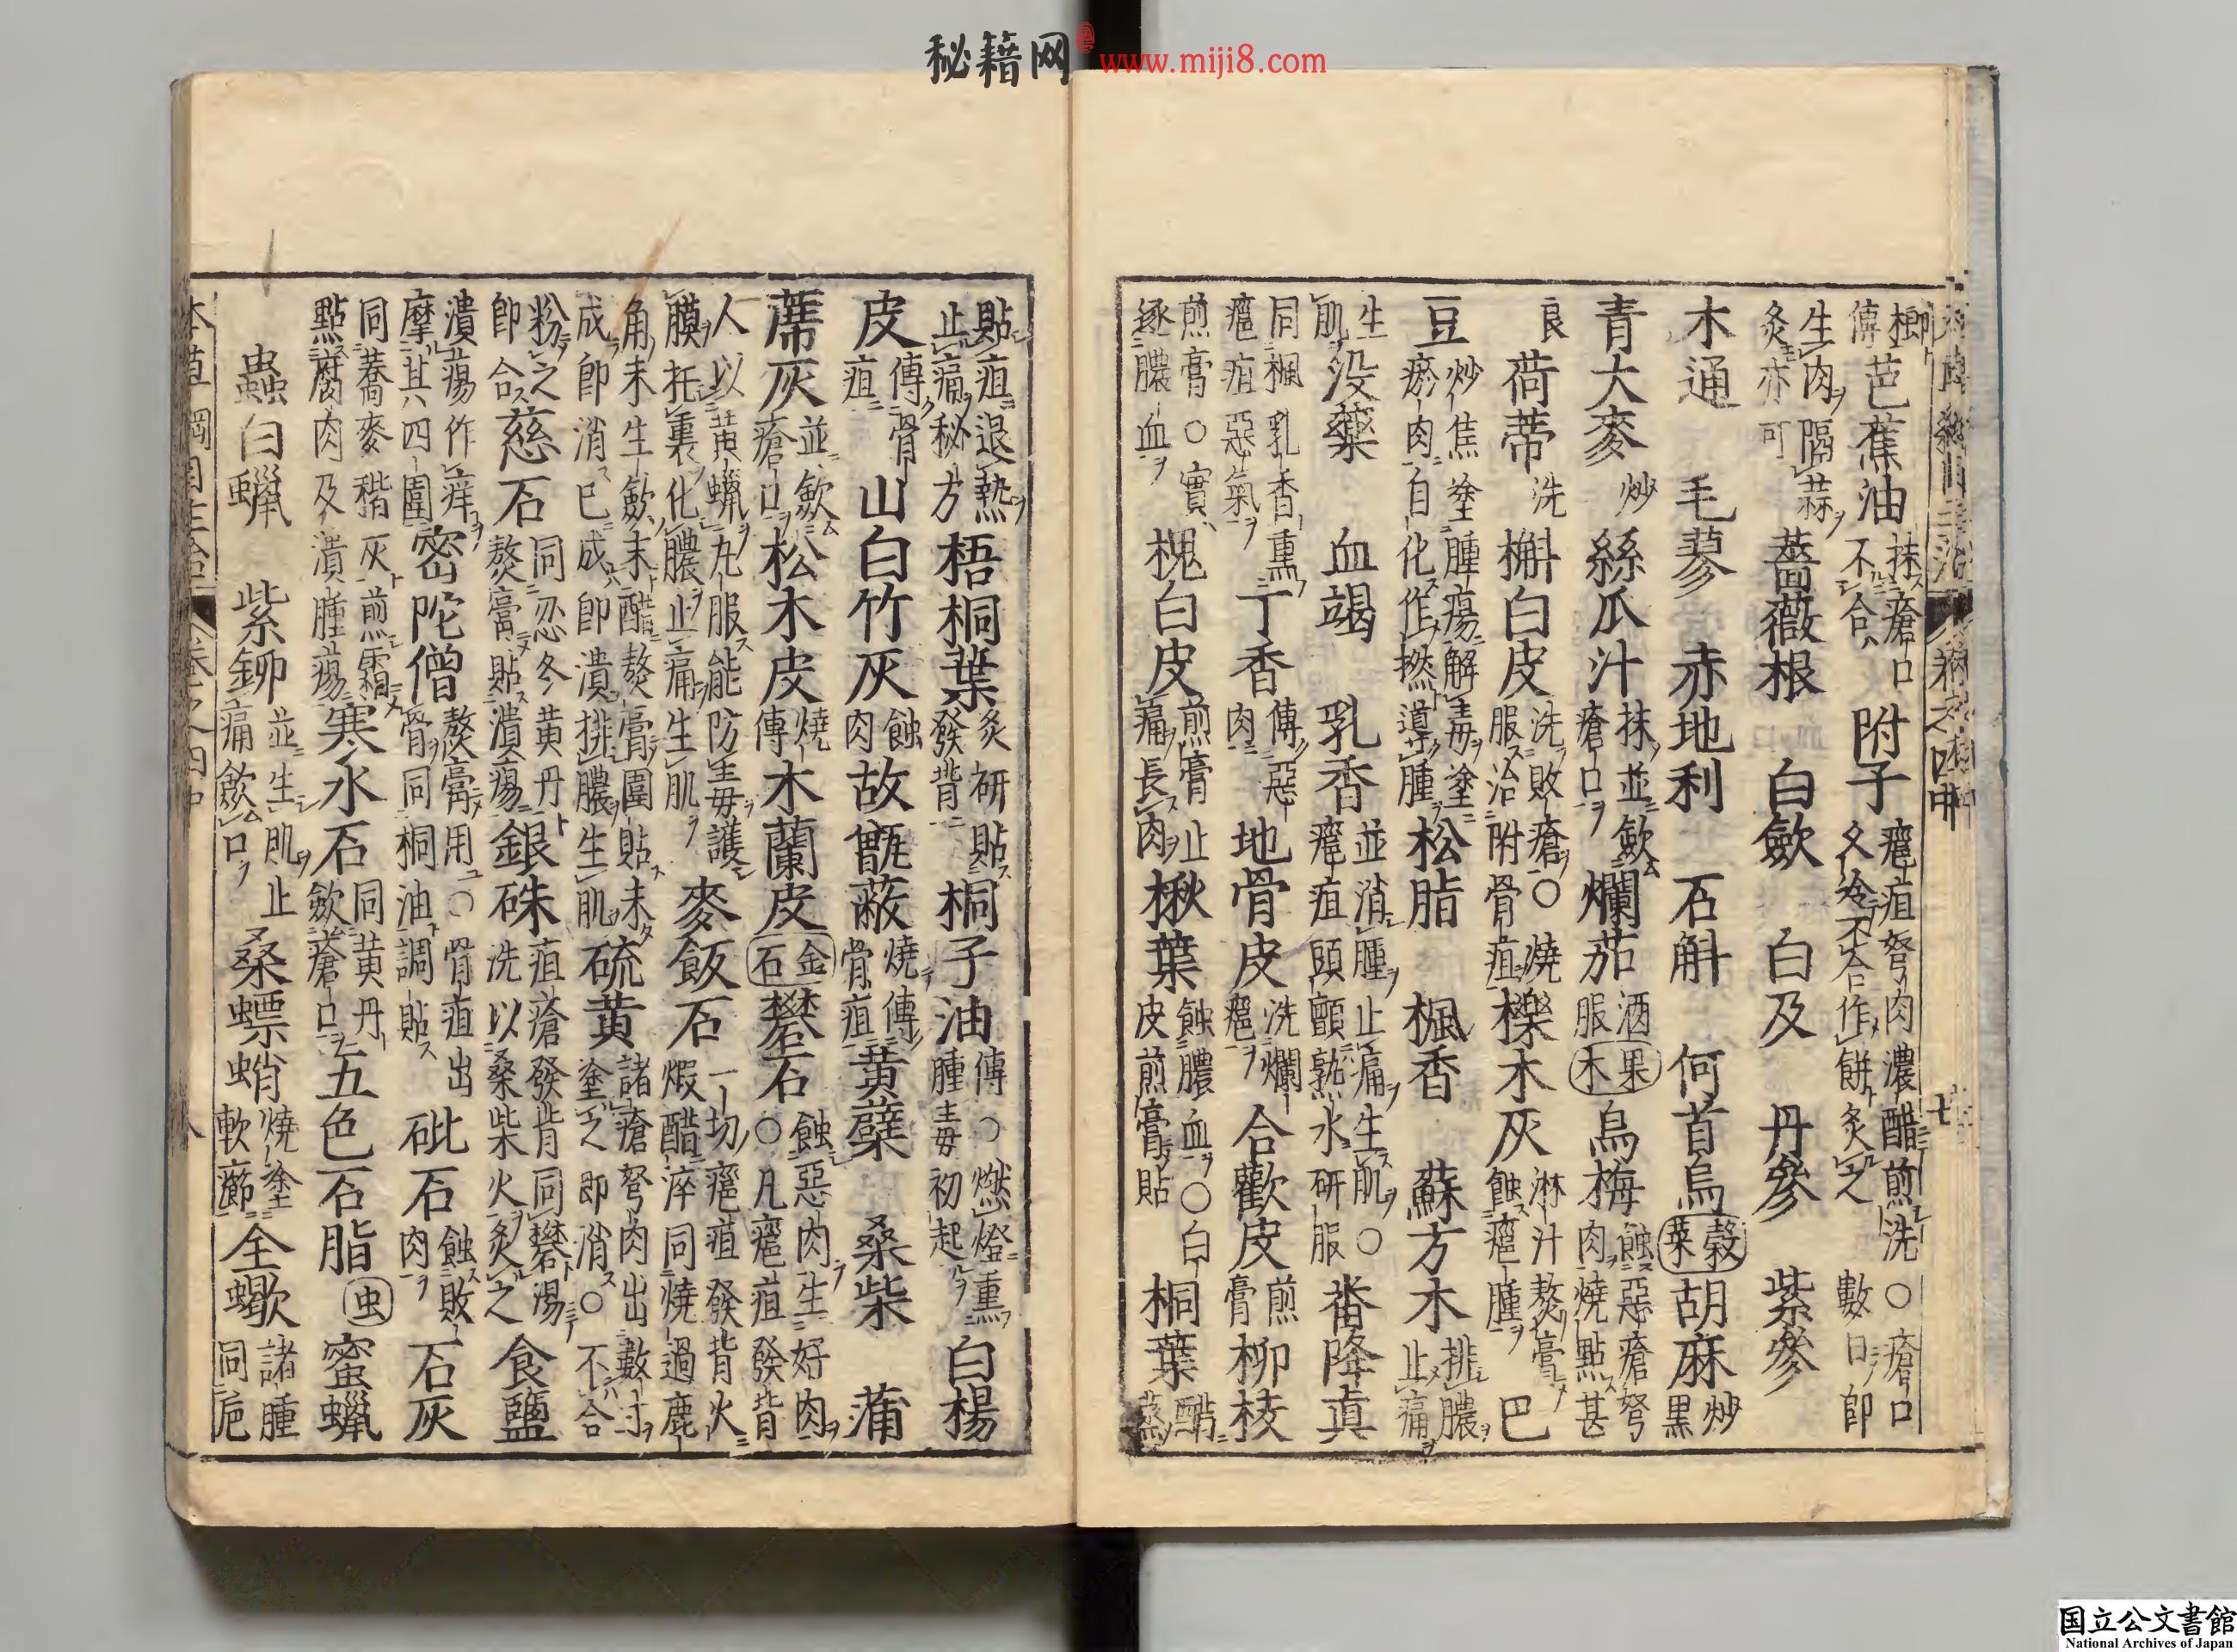 秘籍网 www.miji8.com
櫛傅芭蕉油抹瘡口不合附子癰疽弩肉濃醋煎洗○瘡口久冷不合作餅灸之數日卽
生肉隔蒜灸亦可薔薇根 白歛 白及 丹參 紫參
木通 毛蓼 赤地利 石斛 何首烏穀菜胡麻炒黑
青大麥炒絲瓜汁抹瘡口並歛爛茄酒服果木烏梅蝕惡瘡弩肉燒點甚
良荷蒂洗槲白皮洗敗瘡○燒服治附骨疽櫟木灰淋汁熬膏蝕癰腫巴
豆炒焦塗腫瘍解毒塗瘀肉自化作撚導腫松脂 楓香 蘇方木排膿止痛
生肌没藥 血竭 乳香並消腫止痛生肌○癰疽頭顫熟水研服番降眞
同楓乳香熏癰疽惡氣丁香傅惡肉地骨皮洗爛癰合歡皮煎膏柳枝
煎膏○實逐膿血槐白皮煎膏止痛長肉楸葉蝕膿血○白皮煎膏貼桐葉醋蒸
貼疽退熱止痛秘方梧桐葉炙研貼發背桐子油傅○燃燈熏腫毒初起白楊
皮傅骨疽山白竹灰蝕肉故甑蔽燒傅骨疽黄蘗 桑柴 蒲
蓆灰並歛瘡口松木皮燒傅木蘭皮金石礬石蝕惡肉生好肉○凡癰疽發背
人以黄蠟丸服能防毒護膜托裏化膿止痛生肌麥飯石一切癰疽發背火煅醋淬同燒過鹿
角末生歛末醋熬膏圍貼未成卽消已成卽潰排膿生肌硫黄諸瘡弩肉出數寸塗之即消○不合
粉之卽合慈石同忍冬黄丹熬膏貼潰瘍銀硃疽瘡發背同礬湯洗以桑柴火灸之食鹽
潰瘍作痒摩其四圍密陀僧熬膏用○骨疽出骨同桐油調貼砒石蝕敗肉石灰
同蕎麥稭灰煎霜點腐肉及潰腫瘍寒水石同黄丹歛瘡口五色石脂虫蜜蠟
蟲白蠟 紫鉚並生肌止痛歛口桑螵蛸燒塗軟癤全蠍諸腫同巵
本草綱目主治 卷之四中 八
国立公文書館
National Archives of Japan